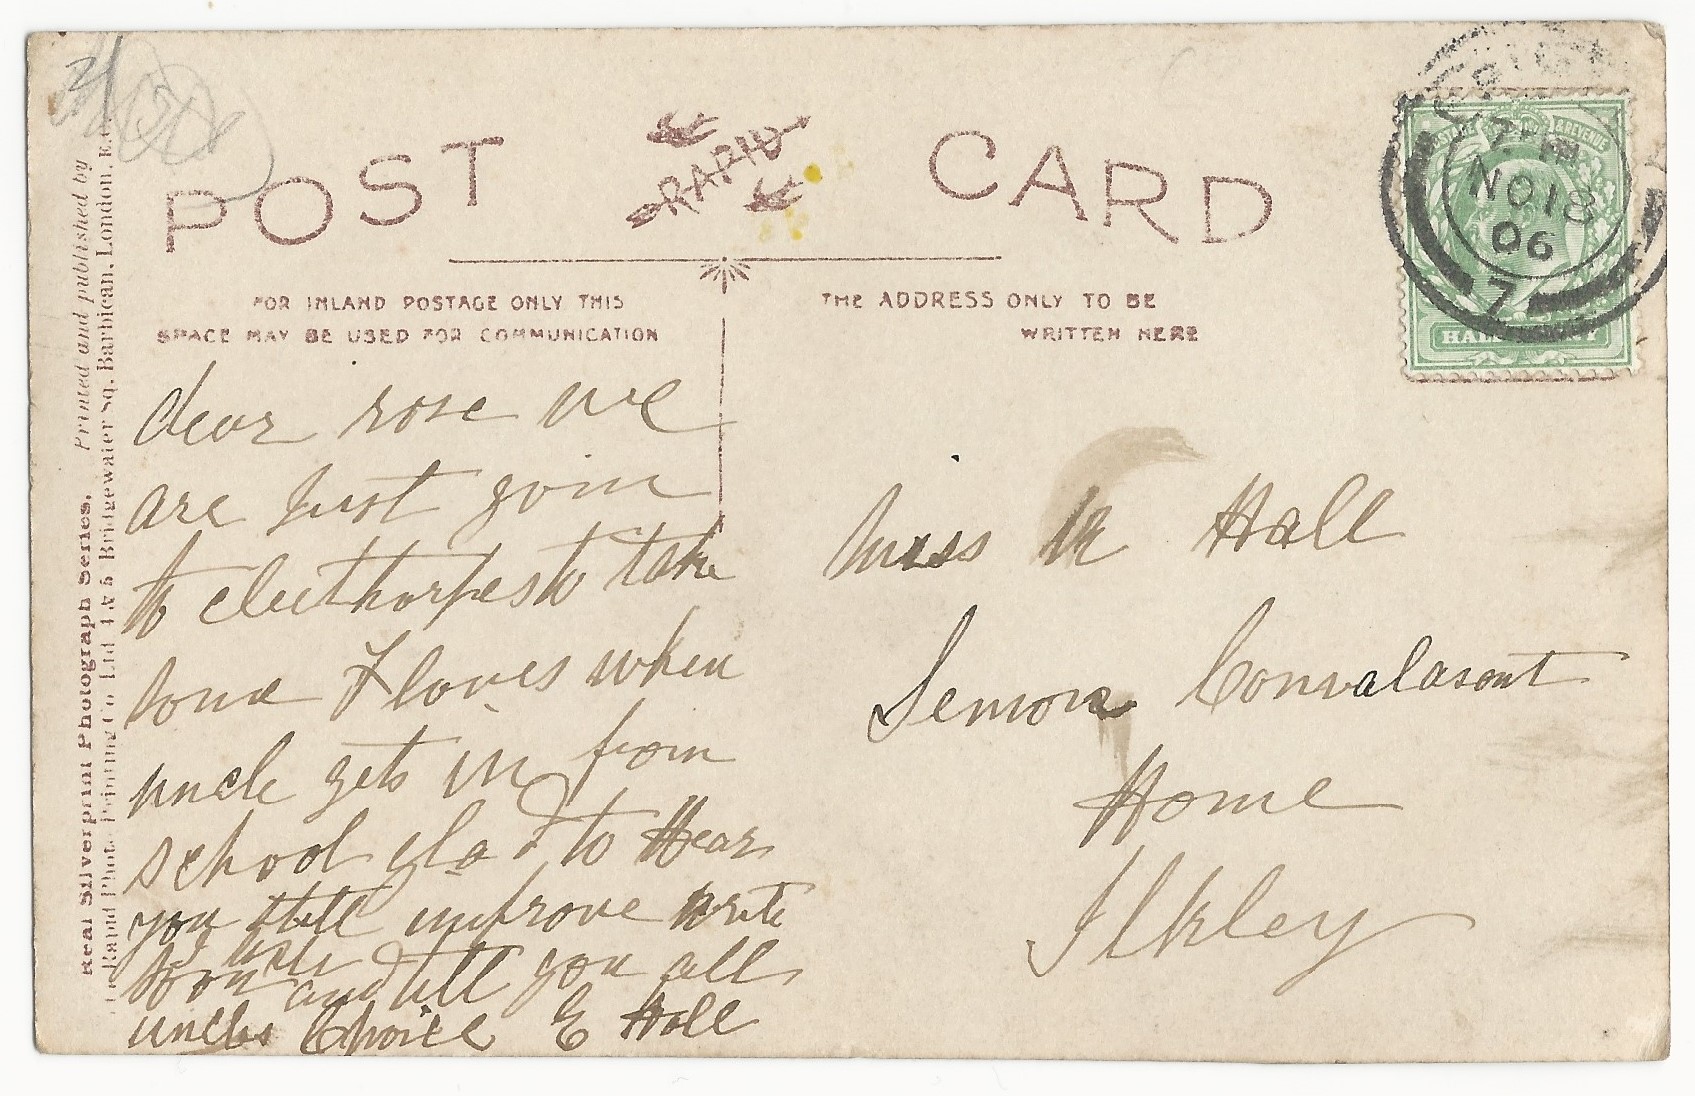 POST RAPID CARD
FOR INLAND POSTAGE ONLY THIS
SPACE MAY BE USED FOR COMMUNICATION
THE ADDRESS ONLY TO BE
WRITTEN HERE
Real Silverprint Photograph Series. Printed and published by
Rapid Photo Printing Co. Ltd 4 & 5 Bridgewater Sq. Barbican, London, E.C.
POSTAGE & REVENUE
NO 18
06
7
HALFPENNY
dear rose we
are just goin
to cleethorpes to take
some Floves when
uncle gets in from
school glad to Hear
you still improve write
soon I will
and tell you all
uncles Choice E Hall
Miss R Hall
Semon Convalasent
Home
Ilkley